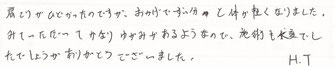 肩こりがひどかったのですが、おかげでずい分と体が軽くなりました。
みていただいてかなりゆがみがあるようなので、施術も大変でし
たでしょうがありがとうございました。
H.T